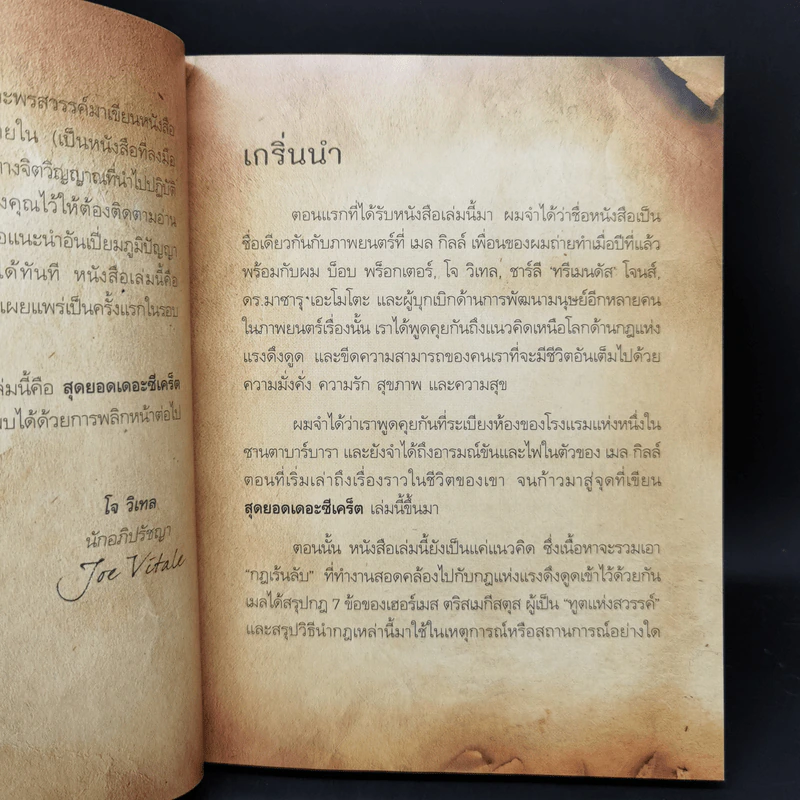 ะพรสวรรค์มาเขียนหนังสือ
ยใน (เป็นหนังสือที่ลงมือ
ทางจิตวิญญาณที่นำไปปฏิบัติ
งคุณไว้ให้ต้องติดตามอ่าน
อแนะนำอันเปี่ยมภูมิปัญญา
ได้ทันที หนังสือเล่มนี้คือ
เผยแพร่เป็นครั้งแรกในรอบ
ล่มนี้คือ สุดยอดเดอะซีเคร็ต
บได้ด้วยการพลิกหน้าต่อไป
โจ วิเทล
นักอภิปรัชญา
Joe Vitale
เกริ่นนำ
ตอนแรกที่ได้รับหนังสือเล่มนี้มา ผมจำได้ว่าชื่อหนังสือเป็น
ชื่อเดียวกันกับภาพยนตร์ที่ เมล กิลล์ เพื่อนของผมถ่ายทำเมื่อปีที่แล้ว
พร้อมกับผม บ็อบ พร็อกเตอร์, โจ วิเทล, ชาร์ลี "ทรีเมนดัส" โจนส์,
ดร.มาซารุ เอะโมโตะ และผู้บุกเบิกด้านการพัฒนามนุษย์อีกหลายคน
ในภาพยนตร์เรื่องนั้น เราได้พูดคุยกันถึงแนวคิดเหนือโลกด้านกฎแห่ง
แรงดึงดูด และขีดความสามารถของคนเราที่จะมีชีวิตอันเต็มไปด้วย
ความมั่งคั่ง ความรัก สุขภาพ และความสุข
ผมจำได้ว่าเราพูดคุยกันที่ระเบียงห้องของโรงแรมแห่งหนึ่งใน
ซานตาบาร์บารา และยังจำได้ถึงอารมณ์ขันและไฟในตัวของ เมล กิลล์
ตอนที่เริ่มเล่าถึงเรื่องราวในชีวิตของเขา จนก้าวมาสู่จุดที่เขียน
สุดยอดเดอะซีเคร็ต เล่มนี้ขึ้นมา
ตอนนั้น หนังสือเล่มนี้ยังเป็นแค่แนวคิด ซึ่งเนื้อหาจะรวมเอา
"กฎเร้นลับ" ที่ทำงานสอดคล้องไปกับกฎแห่งแรงดึงดูดเข้าไว้ด้วยกัน
เมลได้สรุปกฎ 7 ข้อของเฮอร์เมส ตริสเมกีสตุส ผู้เป็น "ทูตแห่งสวรรค์"
และสรุปวิธีนำกฎเหล่านี้มาใช้ในเหตุการณ์หรือสถานการณ์อย่างใด